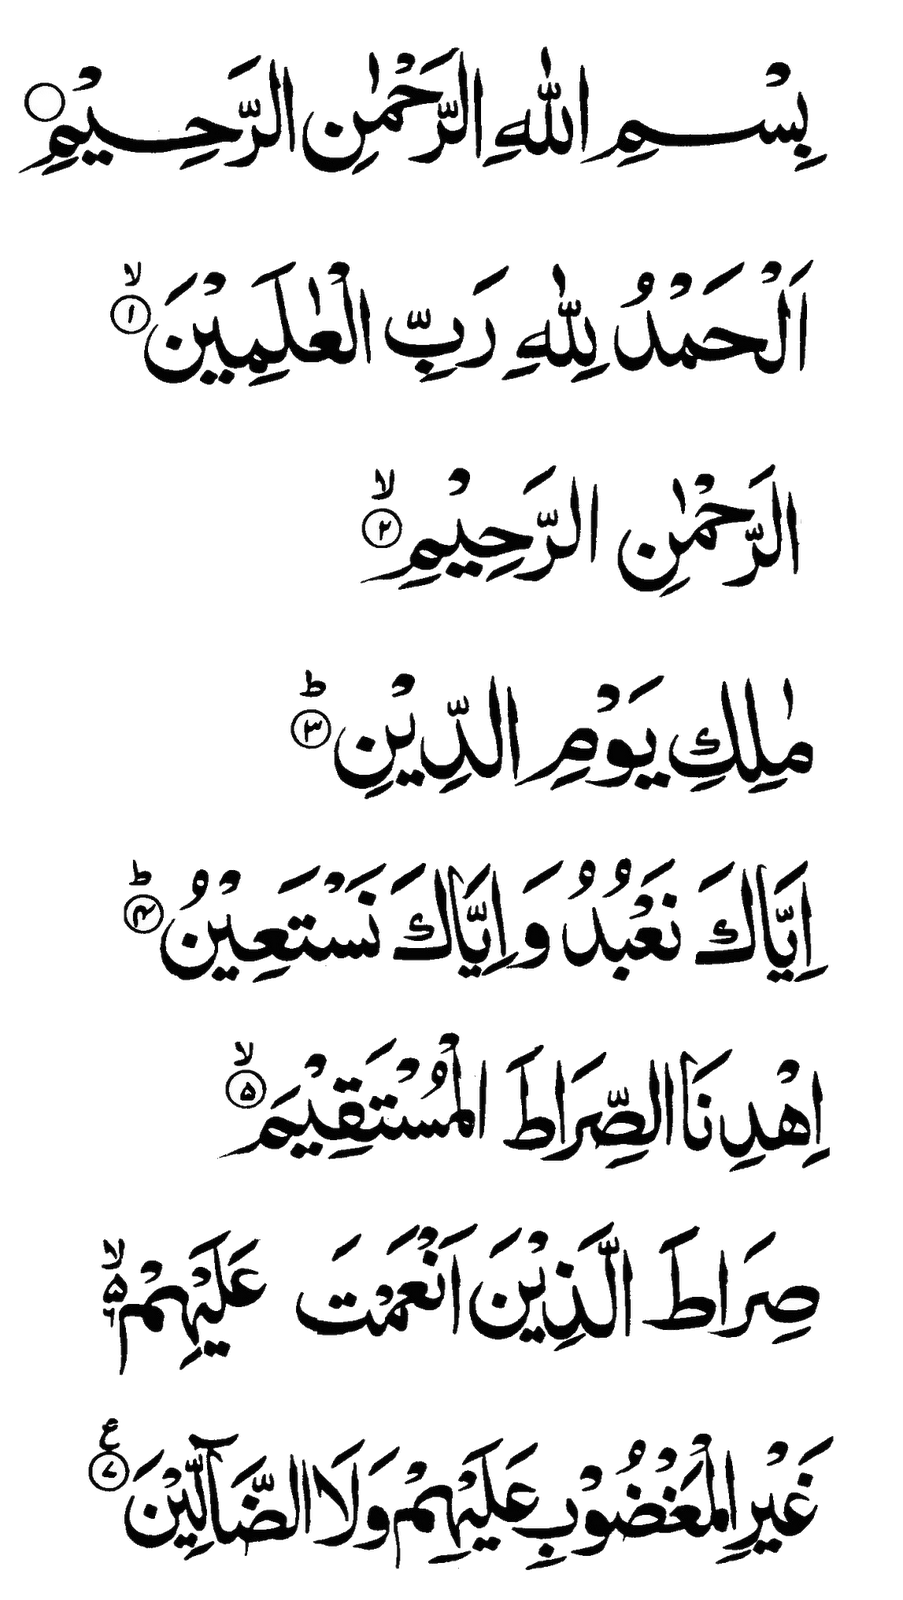 بِسْمِ اللهِ الرَّحْمٰنِ الرَّحِيْمِ ○
اَلْحَمْدُ لِلّٰهِ رَبِّ الْعٰلَمِيْنَ ۙ ۱
الرَّحْمٰنِ الرَّحِيْمِ ۙ ۲
مٰلِكِ يَوْمِ الدِّيْنِ ؕ ۳
اِيَّاكَ نَعْبُدُ وَ اِيَّاكَ نَسْتَعِيْنُ ؕ ۴
اِهْدِنَا الصِّرَاطَ الْمُسْتَقِيْمَ ۙ ۵
صِرَاطَ الَّذِيْنَ اَنْعَمْتَ عَلَيْهِمْ ۙ ۵ ٦
غَيْرِ الْمَغْضُوْبِ عَلَيْهِمْ وَلَا الضَّآلِّيْنَ ع ۷